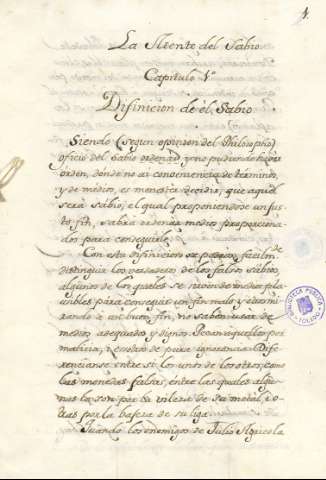 1.
La Mente del Sabio
Capitulo 1º
Difinicion de el Sabio
Siendo (segun opinion del Philosopho)
oficio del Sabio ordenar, y no pudiendo haver
órden, donde no ai conocimiento de terminos,
y de medios, es menester decidir, que aquel
será sabio, el qual proponiendose un jus-
to fin, sabrá ordenar medios proporciona-
dos para conseguirle.
Con esta difinicion se pueden facilmte
distinguir los verdaderos de los falsos sabios,
algunos de los quales se sirven de medios plau-
sibles para conseguir un fin malo; y otros mi-
rando à un buen fin, no saben usar de
medios adequados y dignos. Pecan aquellos por
malicia, i estos de pura ignorancia. Dife-
rencianse entre sí los unos de los otros, como
las monedas falsas, entre las quales algu-
nas lo son por la vileza de su metal, i o-
tras por la baxeza de su liga.
Quando los enemigos de Julio Agricola
BIBLIOTECA PUBLICA
TOLEDO